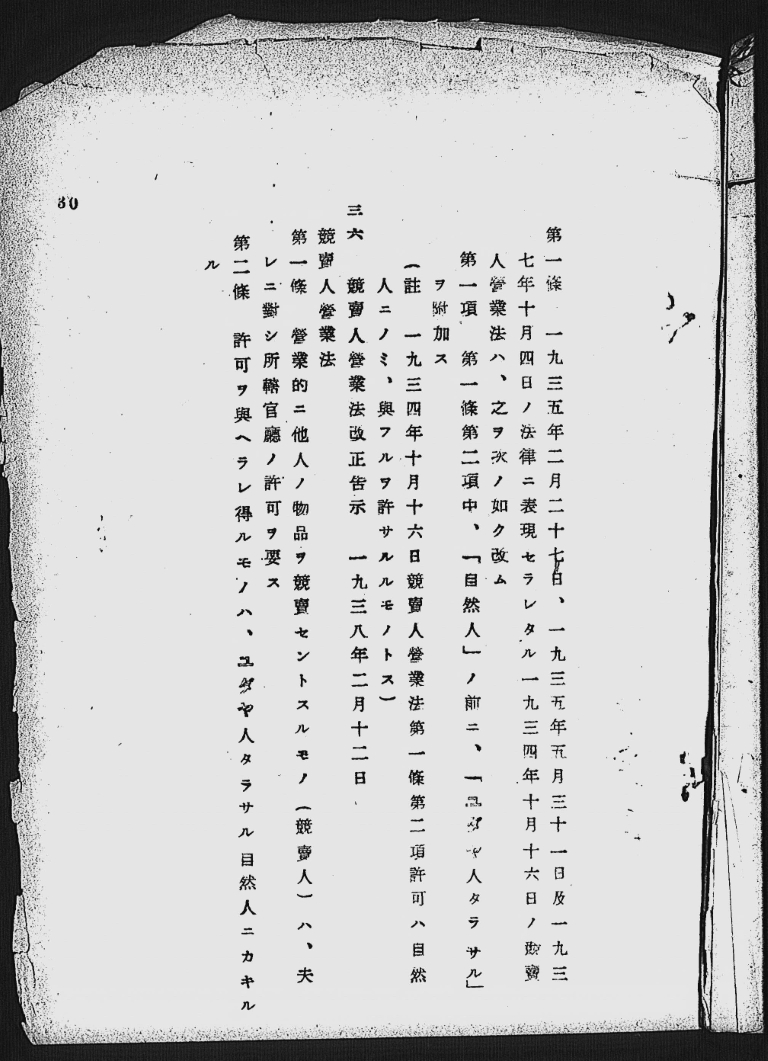 第一條　一九三五年二月二十七日、一九三五年五月三十一日及一九三
七年十月四日ノ法律ニ表現セラレタル一九三四年十月十六日ノ競賣
人營業法ハ、之ヲ次ノ如ク改ム
第一項　第一條第二項中、「自然人」ノ前ニ、「ユダヤ人タラサル」
ヲ附加ス
(註　一九三四年十月十六日競賣人營業法第一條第二項許可ハ自然
人ニノミ、與フルヲ許サルルモノトス)
三六　競賣人營業法改正告示　一九三八年二月十二日
競賣人營業法
第一條　營業的ニ他人ノ物品ヲ競賣セントスルモノ(競賣人)ハ、夫
レニ對シ所轄官廳ノ許可ヲ要ス
第二條　許可ヲ與ヘラレ得ルモノハ、ユダヤ人タラサル自然人ニカキル
ル
30